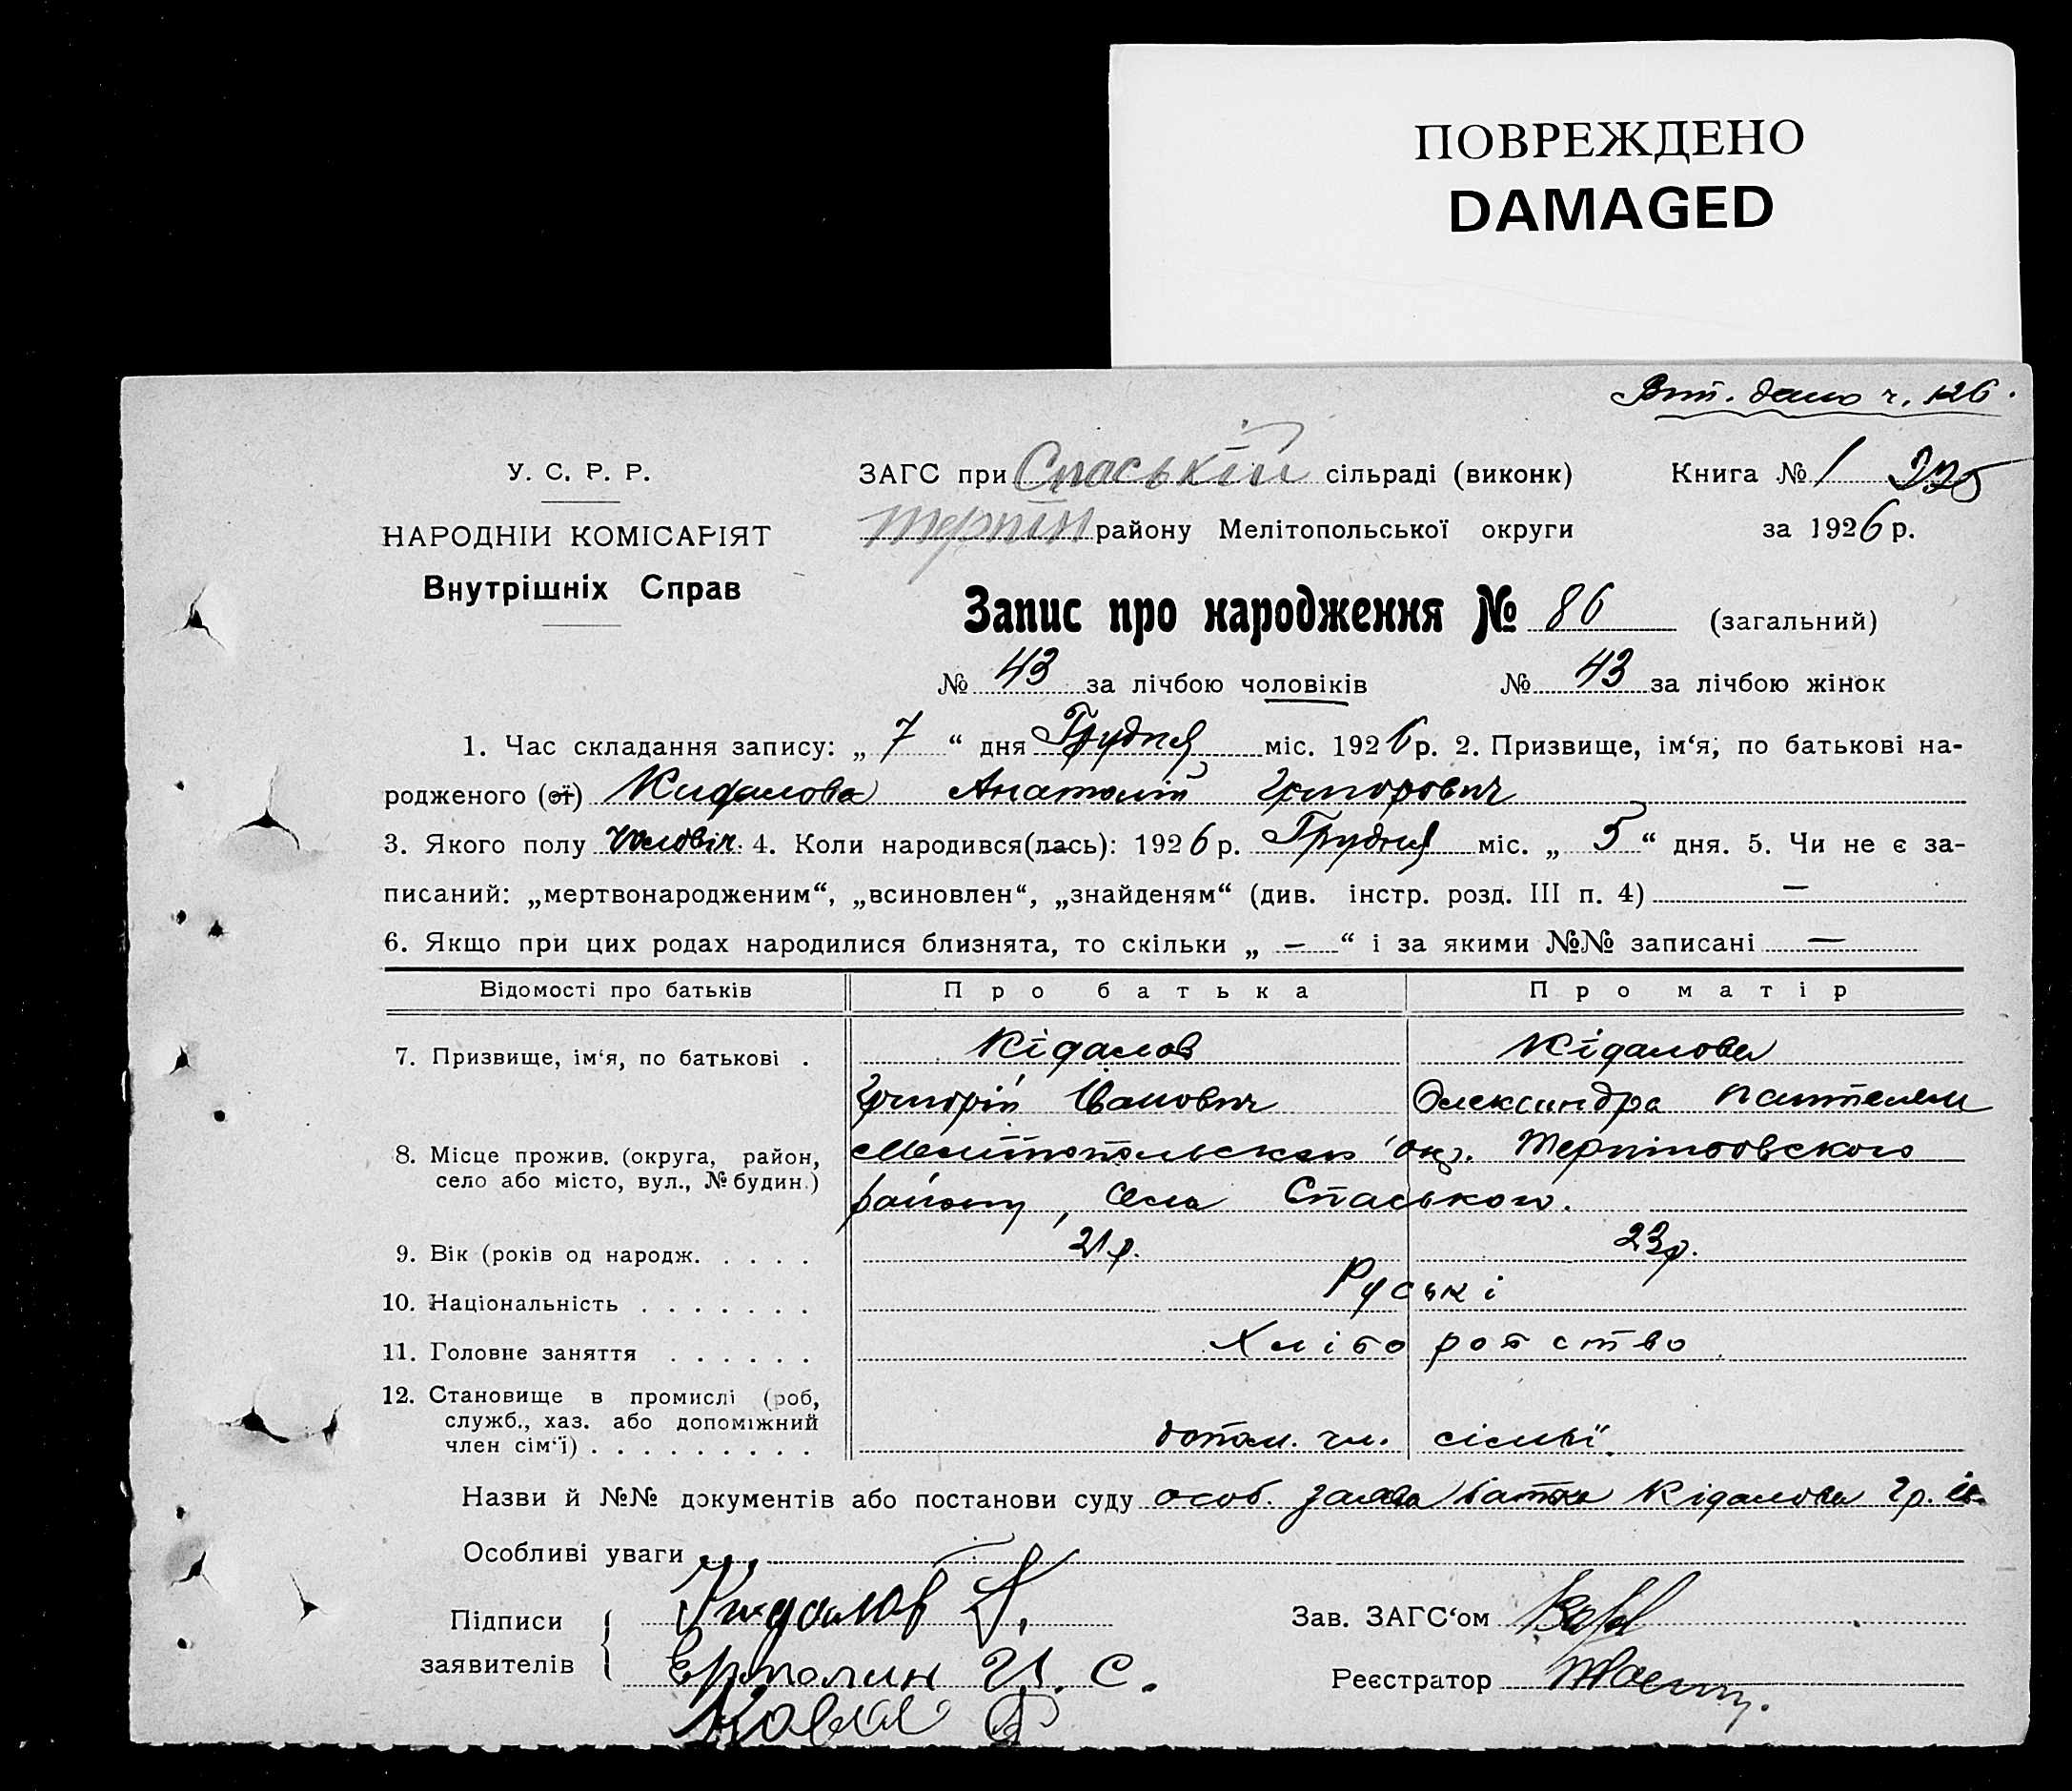 ПОВРЕЖДЕНО
DAMAGED
Вит. дано ч. 126.
У. С. Р. Р.
ЗАГС при Спаській сільраді (виконк)
Книга № 1 225
НАРОДНІЙ КОМІСАРІЯТ
Терпін району Мелітопольської округи
за 1926 р.
Внутрішніх Справ
Запис про народження № 86 (загальний)
№ 43 за лічбою чоловіків № 43 за лічбою жінок
1. Час складання запису: „ 7 “ дня Грудня міс. 1926 р. 2. Призвище, ім‘я, по батькові на-
родженого (ої) Кидалова Анатолій Григорович
3. Якого полу чоловіч. 4. Коли народився(лась): 1926 р. Грудня міс. „ 5 “ дня. 5. Чи не є за-
писаний: „мертвонародженим“, „всиновлен“, „знайденям“ (див. інстр. розд. III п. 4) —
6. Якщо при цих родах народилися близнята, то скільки „ — “ і за якими №№ записані —
Відомості про батьків Про батька Про матір
7. Призвище, ім‘я, по батькові . Кідалов Кідалова
Григорій Іванович Олександра Пантелем
8. Місце прожив. (округа, район, Мелітопольськоі окр. Терпіновского
село або місто, вул., № будин.) району, села Спаського.
9. Вік (років од народж. . . . . 21 р. 23 р.
10. Національність . . . . . . . Руські
11. Головне заняття . . . . . . Хліборобство
12. Становище в промислі (роб,
служб., хаз. або допоміжний
член сім‘ї) . . . . . . . . . допом. чл. сімьї.
Назви й №№ документів або постанови суду особ. заява батька Кідалова Гр. Ів.
Особливі уваги
Підписи
заявителів
Кидалов Г.
Ермолин И. С.
Зав. ЗАГС‘ом
Реєстратор